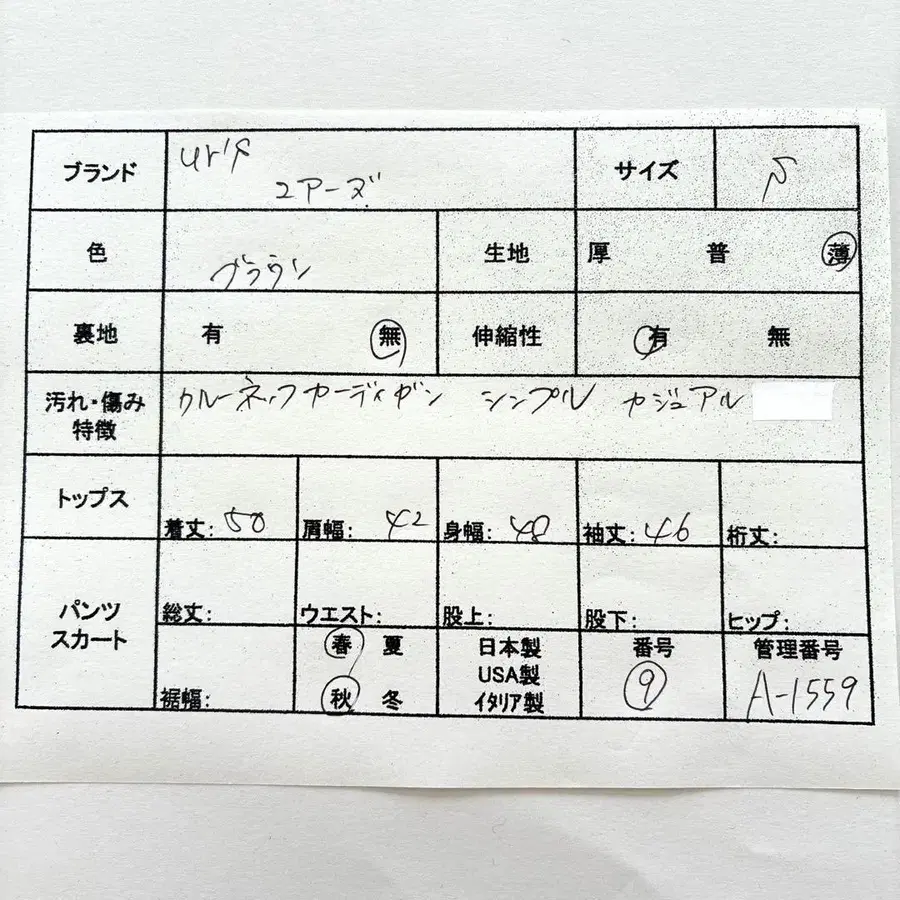 ブランド ur's サイズ S
ユアーズ
色 ブラウン 生地 厚 普 薄
裏地 有 無 伸縮性 有 無
汚れ・傷み クルーネックカーディガン シンプル カジュアル
特徴
トップス 着丈: 50 肩幅: 42 身幅: 48 袖丈: 46 裄丈:
パンツ 総丈: ウエスト: 股上: 股下: ヒップ:
スカート 裾幅: 春 夏 日本製 番号 管理番号
USA製
秋 冬 イタリア製 9 A-1559